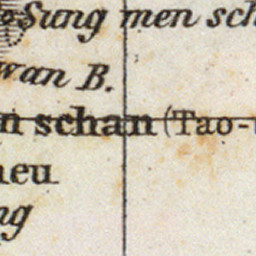 Sung men sch
wan B.
n schan (Tao-
heu
ng